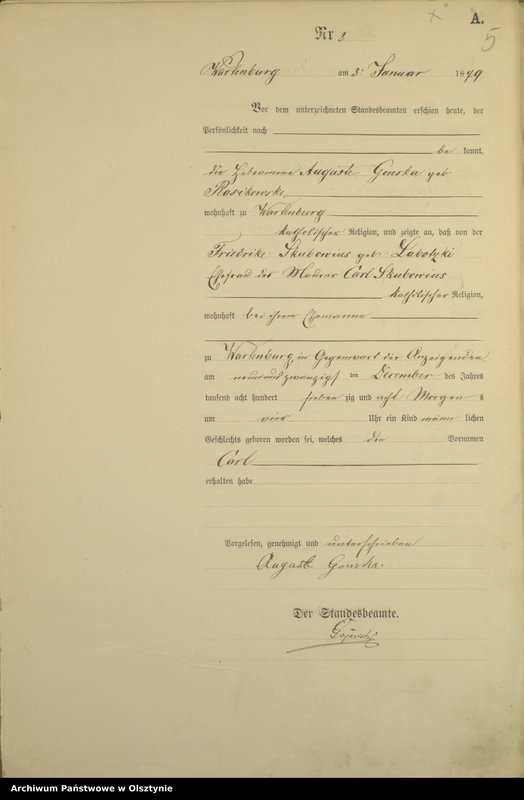 A.
5
Nr 3
Wartenburg am 3. Januar 1879
Vor dem unterzeichneten Standesbeamten erschien heute, der
Persönlichkeit nach
be kannt,
die Hebeamme Auguste Gonska geb
wohnhaft zu Wartenburg
katholischer Religion, und zeigte an, daß von der
Friedrike Skubowius geb. Labotzki
Ehefrau des Maurer Carl Skubowius
katholischer Religion,
wohnhaft bei ihrem Ehemanne
zu Wartenburg, in Gegenwart der Anzeigenden
am neunundzwanzigst ten December des Jahres
tausend acht hundert sieben zig und acht Morgen s
um vier Uhr ein Kind männ lichen
Geschlechts geboren worden sei, welches den Vornamen
Carl
erhalten habe
Vorgelesen, genehmigt und unterschrieben
August Gonska.
Der Standesbeamte.
Archiwum Państwowe w Olsztynie